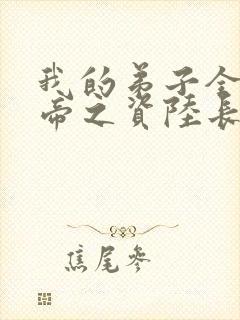 我的弟子全
帝之資陸長
焦尾參